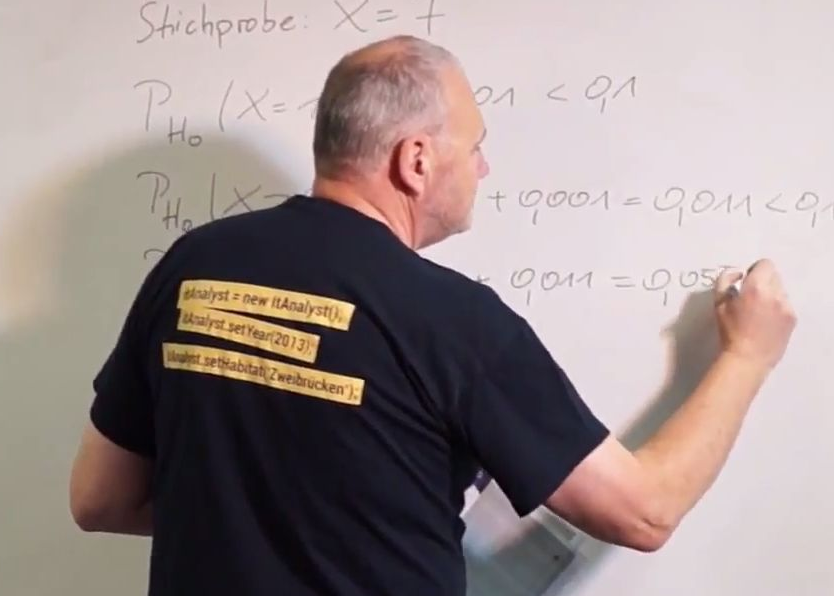 Stichprobe: X = 7
P_H₀ (X = 1 01 < 0,1
P_H₀ (X = + 0,001 = 0,011 < 0,1
+ 0,011 = 0,05
itAnalyst = new ItAnalyst();
itAnalyst.setYear(2013);
itAnalyst.setHabitat("Zweibrücken");